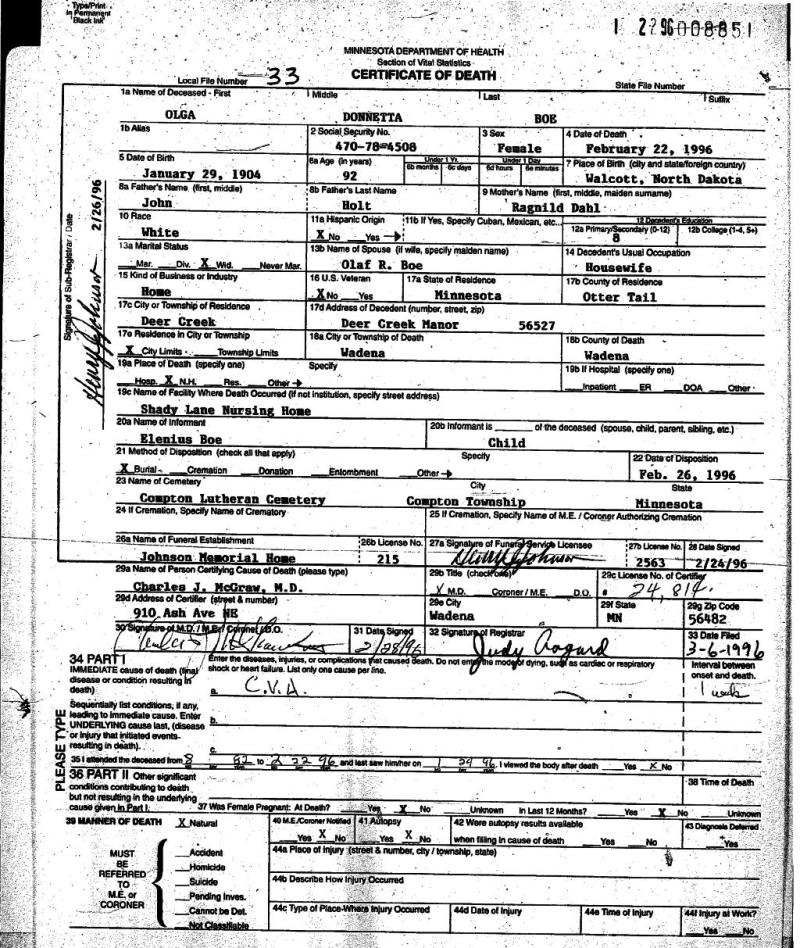 Type/Print
in Permanent
Black Ink
1 2296008851
MINNESOTA DEPARTMENT OF HEALTH
Section of Vital Statistics
CERTIFICATE OF DEATH
Local File Number 33 State File Number
1a Name of Deceased - First Middle Last Suffix
OLGA DONNETTA BOE
1b Alias 2 Social Security No. 3 Sex 4 Date of Death
470-78-4508 Female February 22, 1996
5 Date of Birth 6a Age (in years) Under 1 Yr. 6b months 6c days Under 1 Day 6d hours 6e minutes 7 Place of Birth (city and state/foreign country)
January 29, 1904 92 Walcott, North Dakota
8a Father's Name (first, middle) 8b Father's Last Name 9 Mother's Name (first, middle, maiden surname)
John Holt Ragnild Dahl
10 Race 11a Hispanic Origin 11b If Yes, Specify Cuban, Mexican, etc. 12 Decedent's Education
12a Primary/Secondary (0-12) 12b College (1-4, 5+)
White X No Yes → 8
13a Marital Status 13b Name of Spouse (if wife, specify maiden name) 14 Decedent's Usual Occupation
Mar. Div. X Wid. Never Mar. Olaf R. Boe Housewife
15 Kind of Business or Industry 16 U.S. Veteran 17a State of Residence 17b County of Residence
Home X No Yes Minnesota Otter Tail
17c City or Township of Residence 17d Address of Decedent (number, street, zip)
Deer Creek Deer Creek Manor 56527
17e Residence in City or Township 18a City or Township of Death 18b County of Death
X City Limits Township Limits Wadena Wadena
19a Place of Death (specify one) Specify 19b If Hospital (specify one)
Hosp. X N.H. Res. Other → Inpatient ER DOA Other
19c Name of Facility Where Death Occurred (if not institution, specify street address)
Shady Lane Nursing Home
20a Name of Informant 20b Informant is of the deceased (spouse, child, parent, sibling, etc.)
Elenius Boe Child
21 Method of Disposition (check all that apply) Specify 22 Date of Disposition
X Burial Cremation Donation Entombment Other → Feb. 26, 1996
23 Name of Cemetery City State
Compton Lutheran Cemetery Compton Township Minnesota
24 If Cremation, Specify Name of Crematory 25 If Cremation, Specify Name of M.E. / Coroner Authorizing Cremation
26a Name of Funeral Establishment 26b License No. 27a Signature of Funeral Service Licensee 27b License No. 28 Date Signed
Johnson Memorial Home 215 Henry Johnson 2563 2/24/96
29a Name of Person Certifying Cause of Death (please type) 29b Title (check one) 29c License No. of Certifier
Charles J. McGraw, M.D. X M.D. Coroner / M.E. D.O. # 24,814
29d Address of Certifier (street & number) 29e City 29f State 29g Zip Code
910 Ash Ave NE Wadena MN 56482
30 Signature of M.D. / M.E. / Coroner / D.O. 31 Date Signed 32 Signature of Registrar 33 Date Filed
2/28/96 Judy 3-6-1996
34 PART I Enter the diseases, injuries, or complications that caused death. Do not enter the mode of dying, such as cardiac or respiratory
shock or heart failure. List only one cause per line.
Interval between
onset and death.
IMMEDIATE cause of death (final
disease or condition resulting in
death)
a. C.V.A. 1 week
Sequentially list conditions, if any,
leading to immediate cause. Enter
UNDERLYING cause last, (disease
or injury that initiated events
resulting in death).
b.
c.
35 I attended the deceased from 8 82 to 2 22 96 and last saw him/her on 1 29 96. I viewed the body after death Yes X No
36 PART II Other significant
conditions contributing to death
but not resulting in the underlying
cause given in Part I.
38 Time of Death
37 Was Female Pregnant: At Death? Yes X No Unknown In Last 12 Months? Yes X No Unknown
39 MANNER OF DEATH X Natural 40 M.E./Coroner Notified 41 Autopsy 42 Were autopsy results available 43 Diagnosis Deferred
Yes X No Yes X No when filling in cause of death Yes No Yes
MUST
BE
REFERRED
TO
M.E. or
CORONER
Accident
Homicide
Suicide
Pending Inves.
Cannot be Det.
Not Classifiable
44a Place of Injury (street & number, city / township, state)
44b Describe How Injury Occurred
44c Type of Place-Where Injury Occurred 44d Date of Injury 44e Time of Injury 44f Injury at Work?
Yes No
Signature of Sub-Registrar / Date
Henry Johnson 2/26/96
PLEASE TYPE